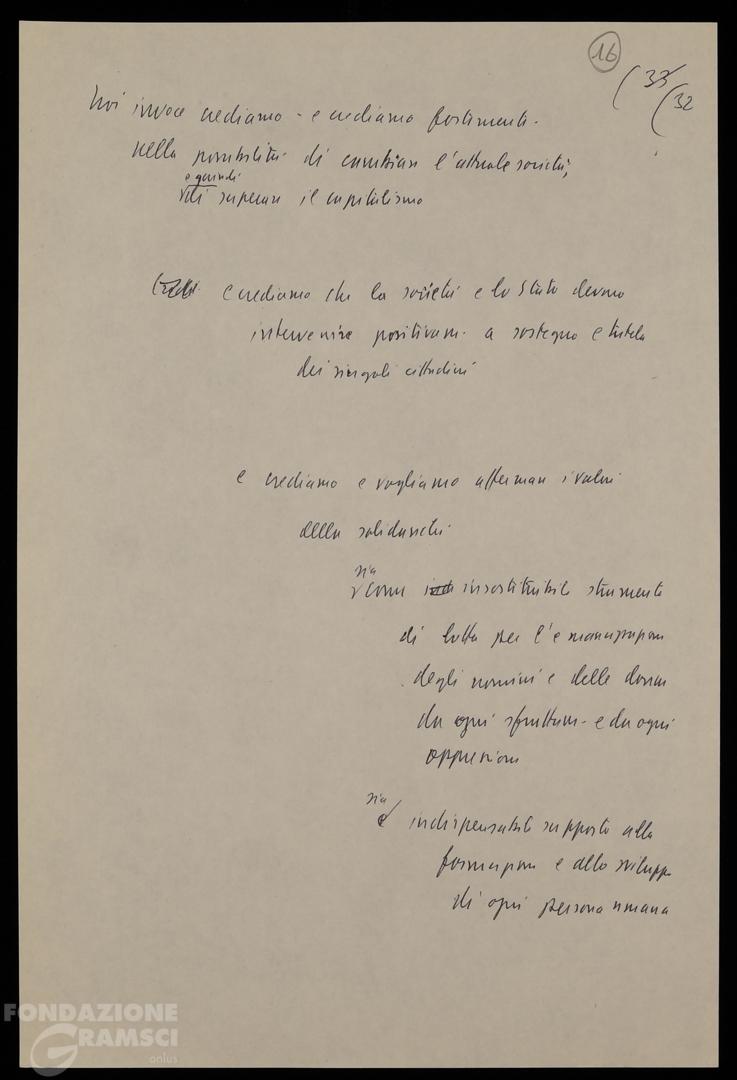 16
(33
(32
Noi invece crediamo - e crediamo fortement.
nella possibilità di cambiare l'attuale società,
e quindi
di superare il capitalismo
e crediamo che la società e lo Stato devono
intervenire positivam. a sostegno e tutela
dei singoli cittadini
e crediamo e vogliamo affermare i valori
della solidarietà
sia
come insostituibile strumento
di lotta per l'emancipazione
degli uomini e delle donne
da ogni sfruttam. e da ogni
oppressione
sia
e indispensabile supporto alla
formazione e allo sviluppo
di ogni persona umana
FONDAZIONE
GRAMSCI
onlus